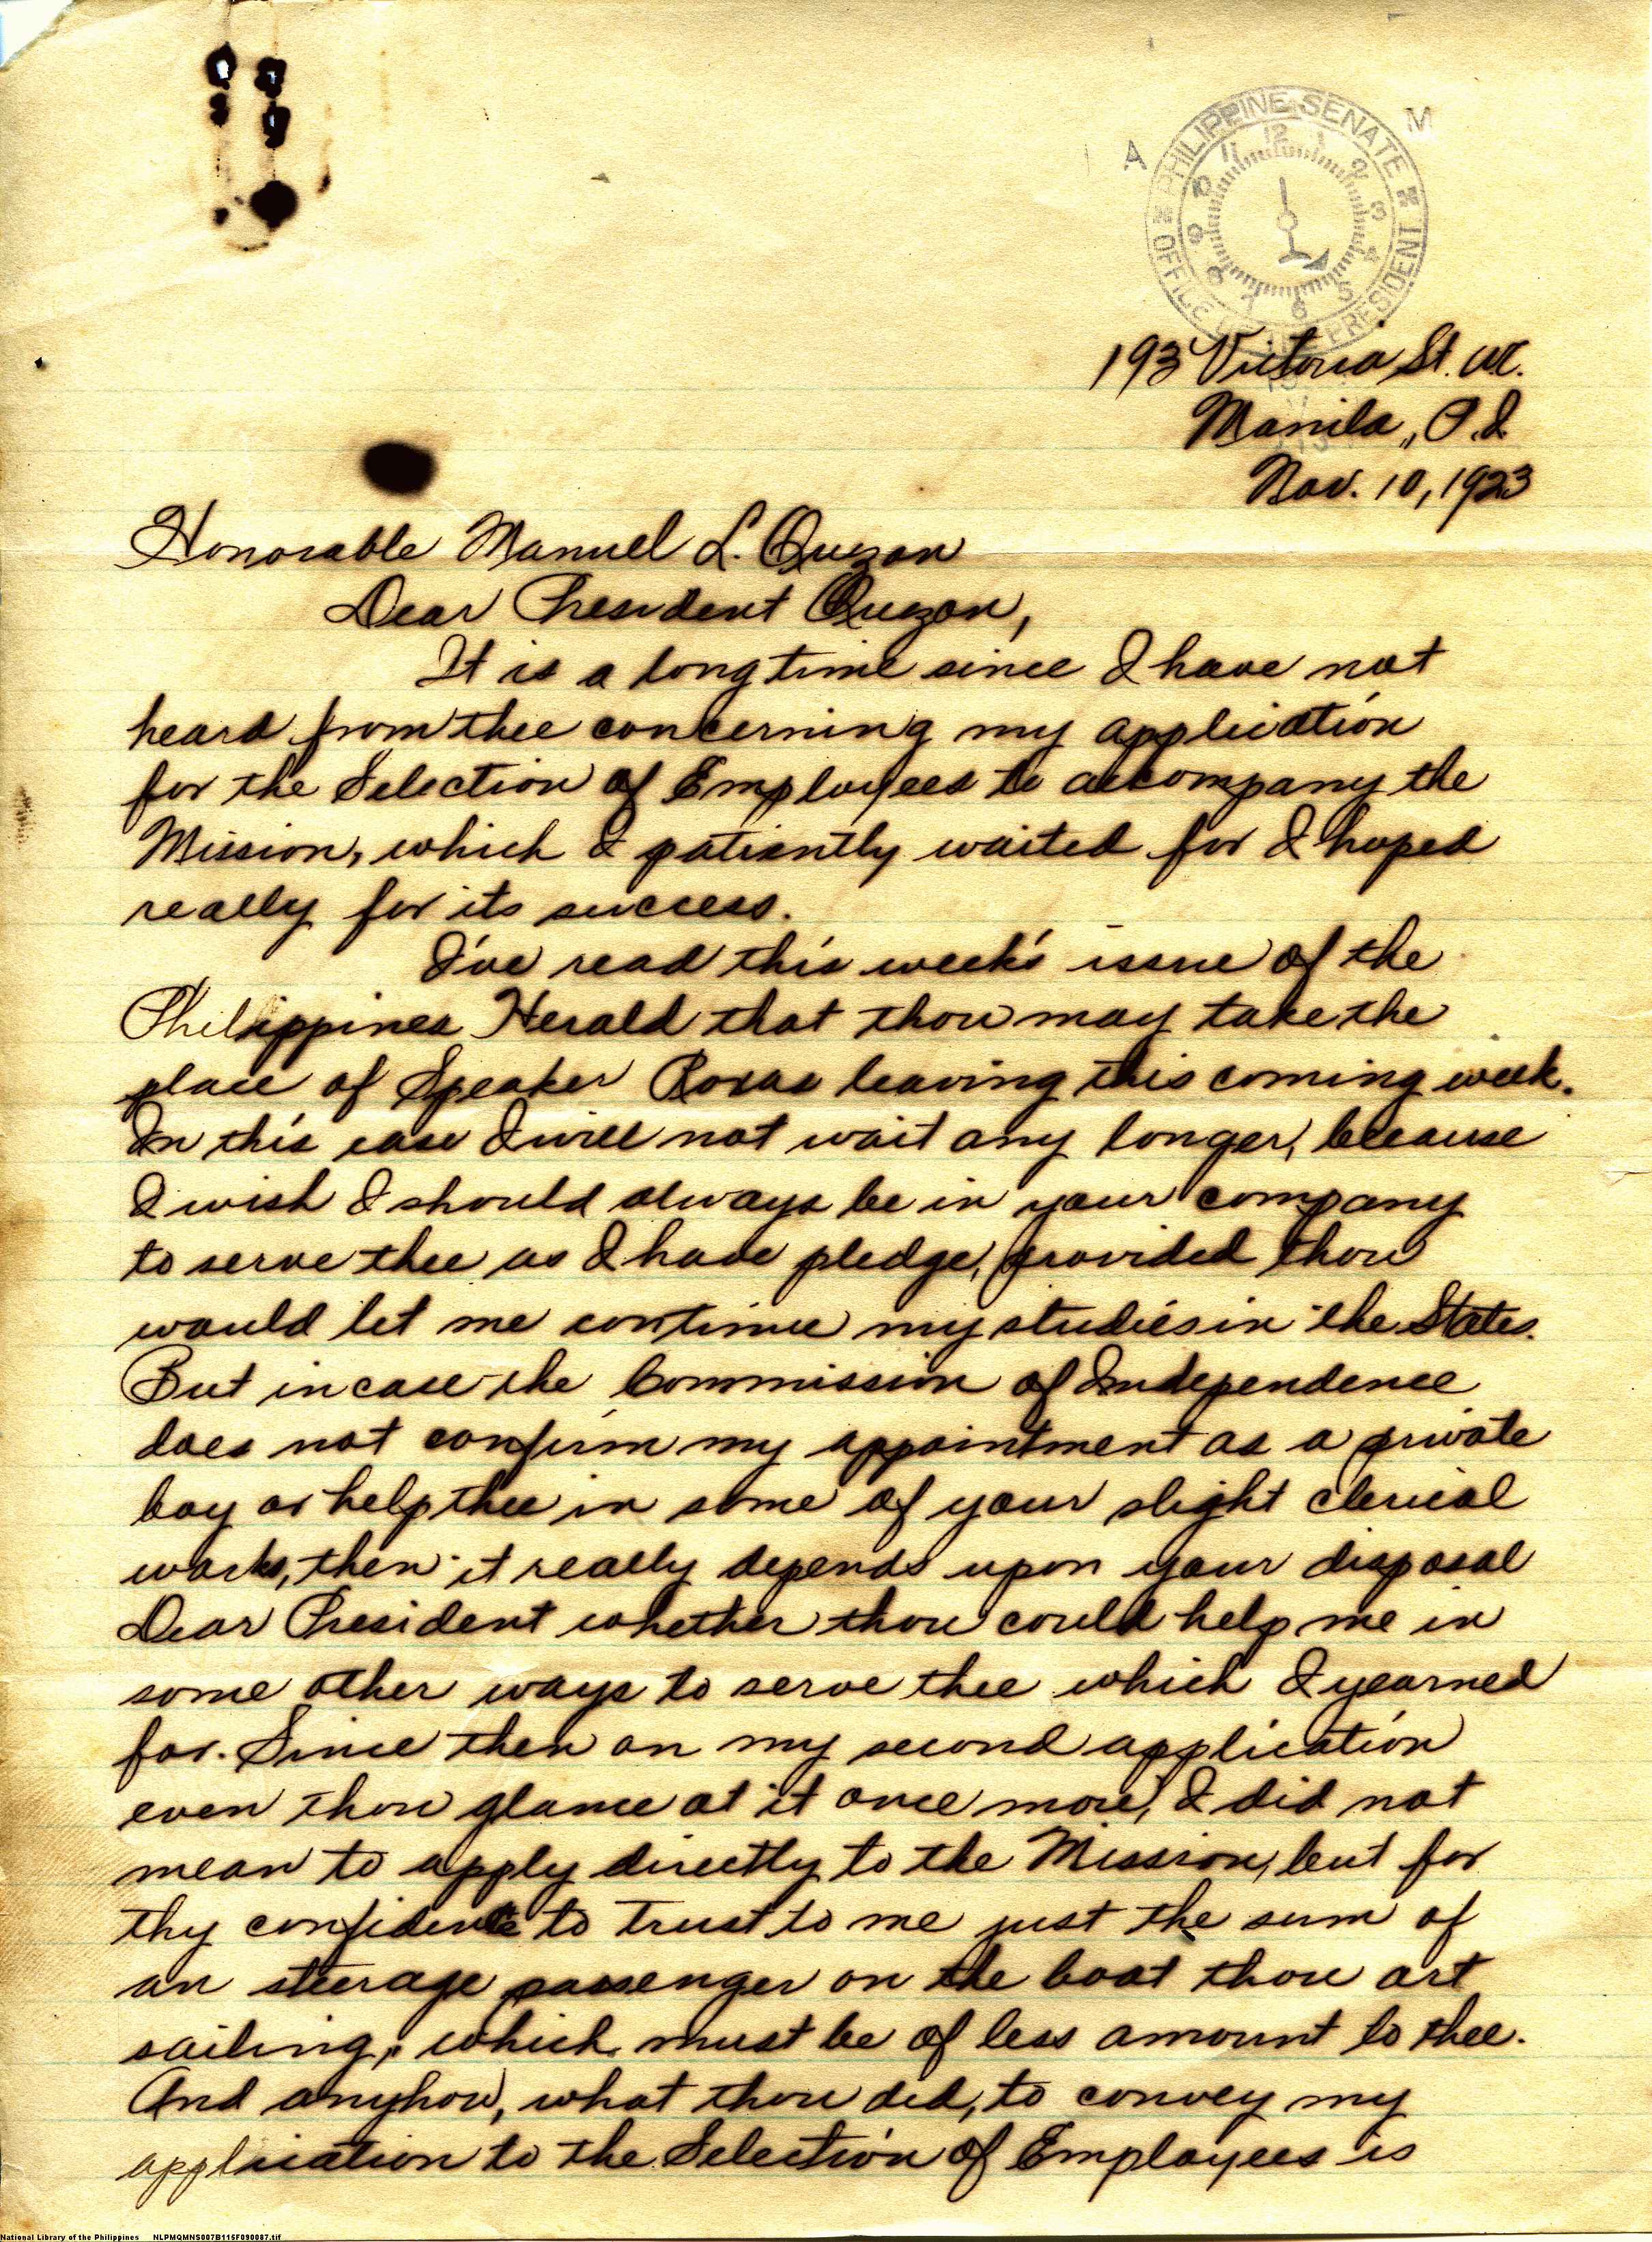 PHILIPPINE SENATE
OFFICE OF THE PRESIDENT
A M
12 1 2 3 4 5 6 7 8 9 10 11
193 Victoria St. W.C.
Manila, P.I.
Nov. 10, 1923
Honorable Manuel L. Quezon
Dear President Quezon,
It is a long time since I have not
heard from thee concerning my application
for the Selection of Employees to accompany the
Mission, which I patiently waited for I hoped
really for its success.
I've read this week's issue of the
Philippines Herald that thou may take the
place of Speaker Roxas leaving this coming week.
In this case I will not wait any longer, because
I wish I should always be in your company
to serve thee as I have pledge, provided thou
would let me continue my studies in the States.
But in case the Commission of Independence
does not confirm my appointment as a private
boy or help thee in some of your slight clerical
works, then it really depends upon your disposal
Dear President whether thou could help me in
some other ways to serve thee which I yearned
for. Since then on my second application
even thou glance at it once more, I did not
mean to apply directly to the Mission, but for
thy confidence to trust to me just the sum of
an steerage passenger on the boat thou art
sailing, which must be of less amount to thee.
And anyhow, what thou did, to convey my
application to the Selection of Employees is
National Library of the Philippines NLPMQMNS007B115F090087.tif